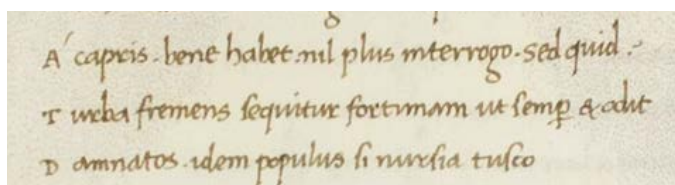 A capris · bene habet · nil plus interrogo · sed quid ·
T urba fremens sequitur fortunam ut semꝑ & odit
D amnatos · idem populus si nursia tusco